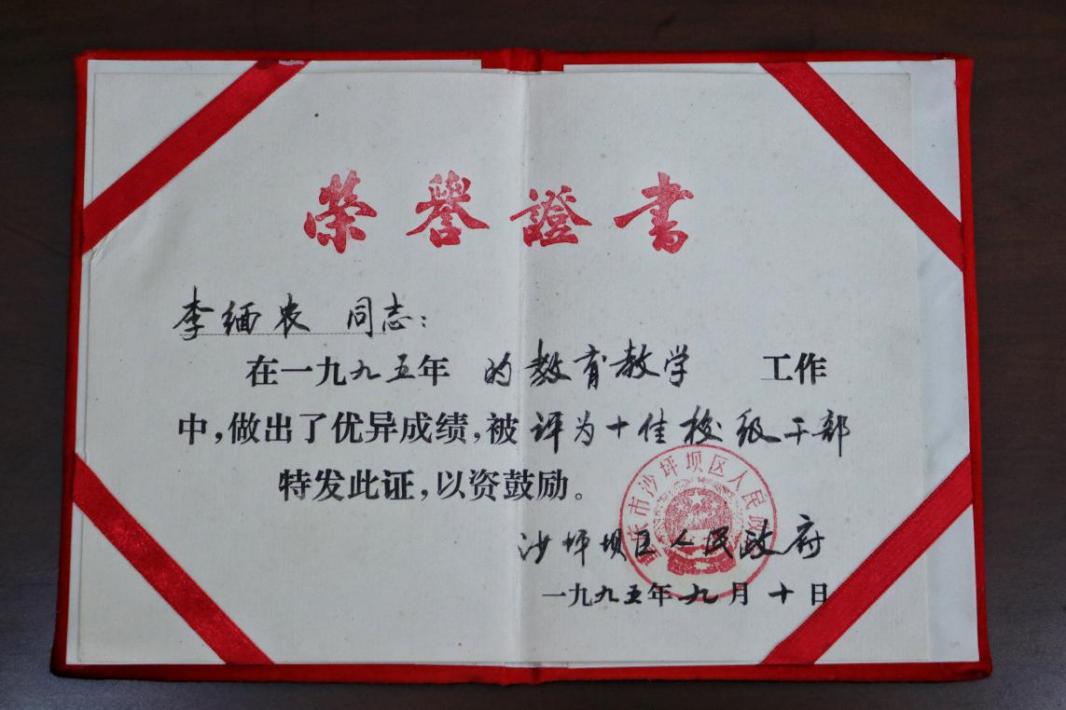 荣誉證書
李缅农 同志：
在一九九五年 的教育教学 工作
中，做出了优异成绩，被评为十佳校级干部
特发此证，以资鼓励。
沙坪坝区人民政府
一九九五年九月十日
市沙坪坝区人民